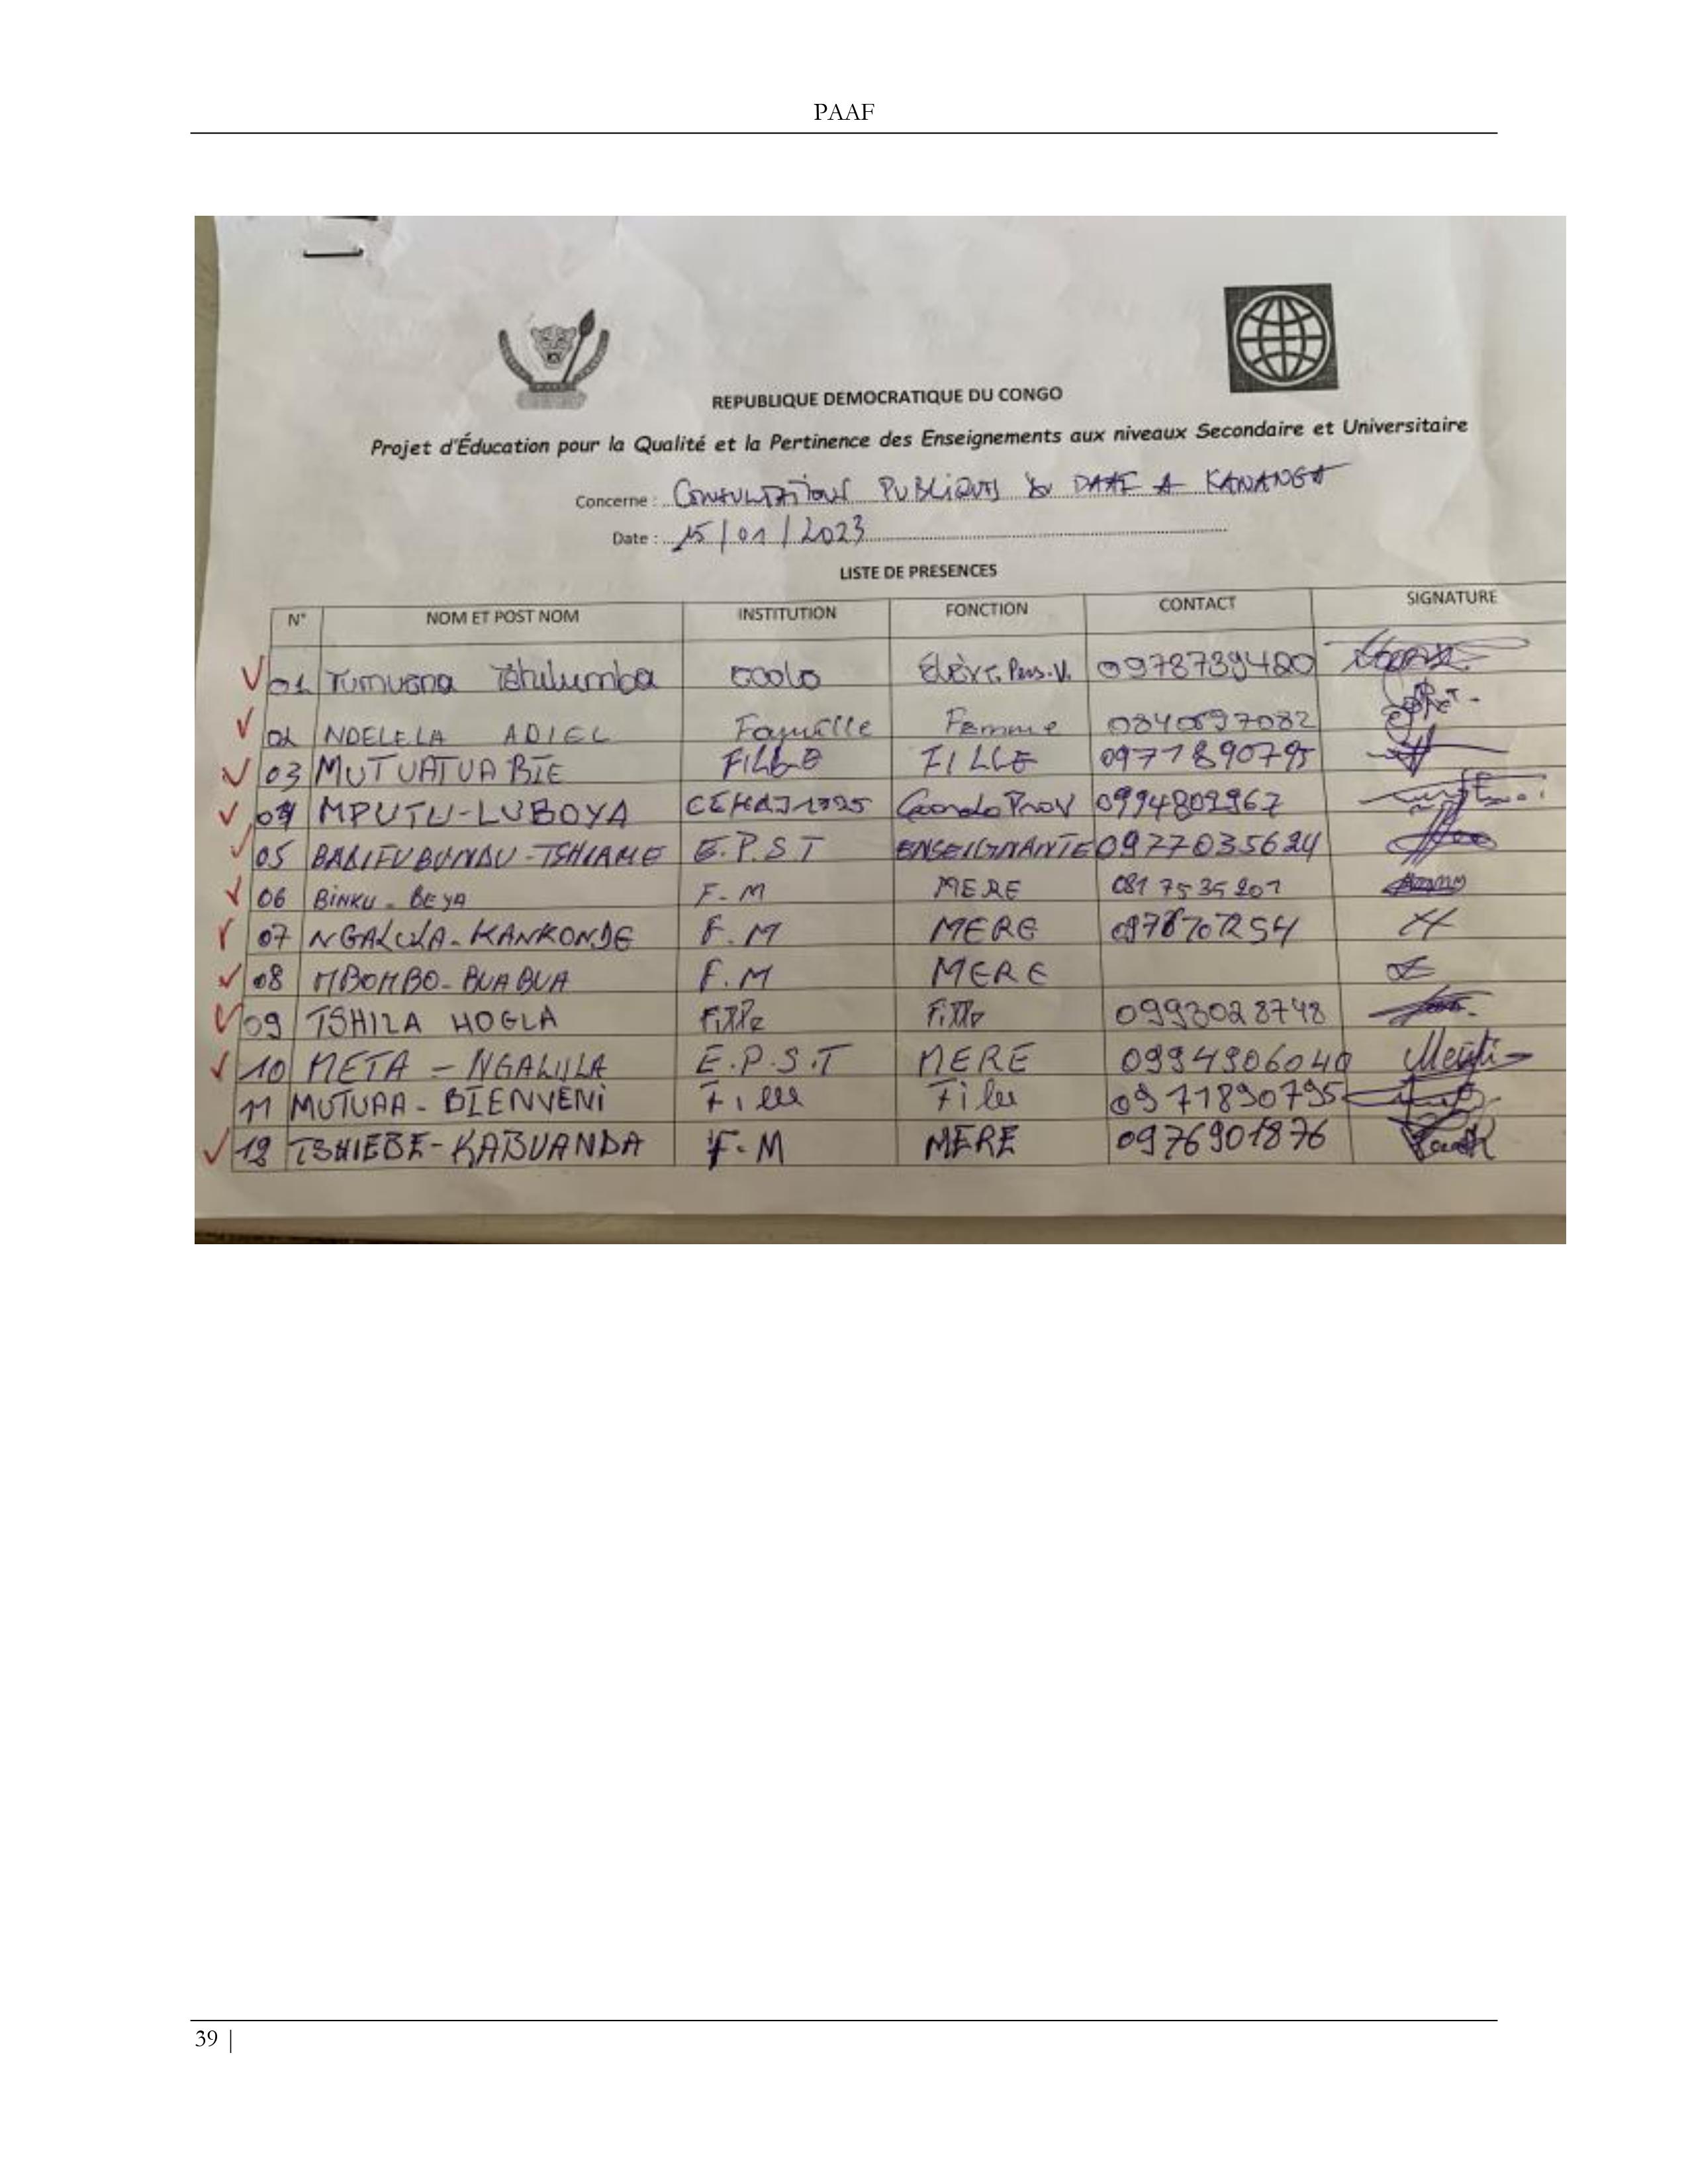 PAAF
REPUBLIQUE DEMOCRATIQUE DU CONGO
Projet d'Éducation pour la Qualité et la Pertinence des Enseignements aux niveaux Secondaire et Universitaire
Concerne : CONSULTATIONS PUBLIQUES A KANANGA
Date : 15/01/2023
LISTE DE PRESENCES
N° NOM ET POST NOM INSTITUTION FONCTION CONTACT SIGNATURE
01 Tshilumba Elève Pers.V. 0978739480
02 NDELELA ADIEL Famille Femme
03 MUTUATUA BIE FILLE FILLE 0971890795
04 MPUTU-LUBOYA Prov 0994802967
05 E.P.S.T ENSEIGNANTE 0977035624
06 BINKU - BEYA F-M MERE 081 75 35 201
07 NGALULA - KANKONDE F.M MERE
08 MBOMBO - BUABUA F.M MERE
09 TSHILA HOGLA Fille Fille 0993028748
10 META - NGALULA E.P.S.T MERE 0994906040
11 MUTUAA - BIENVENI 0971890795
12 TSHIEBE - KABUANDA F-M MERE 0976901876
39 |